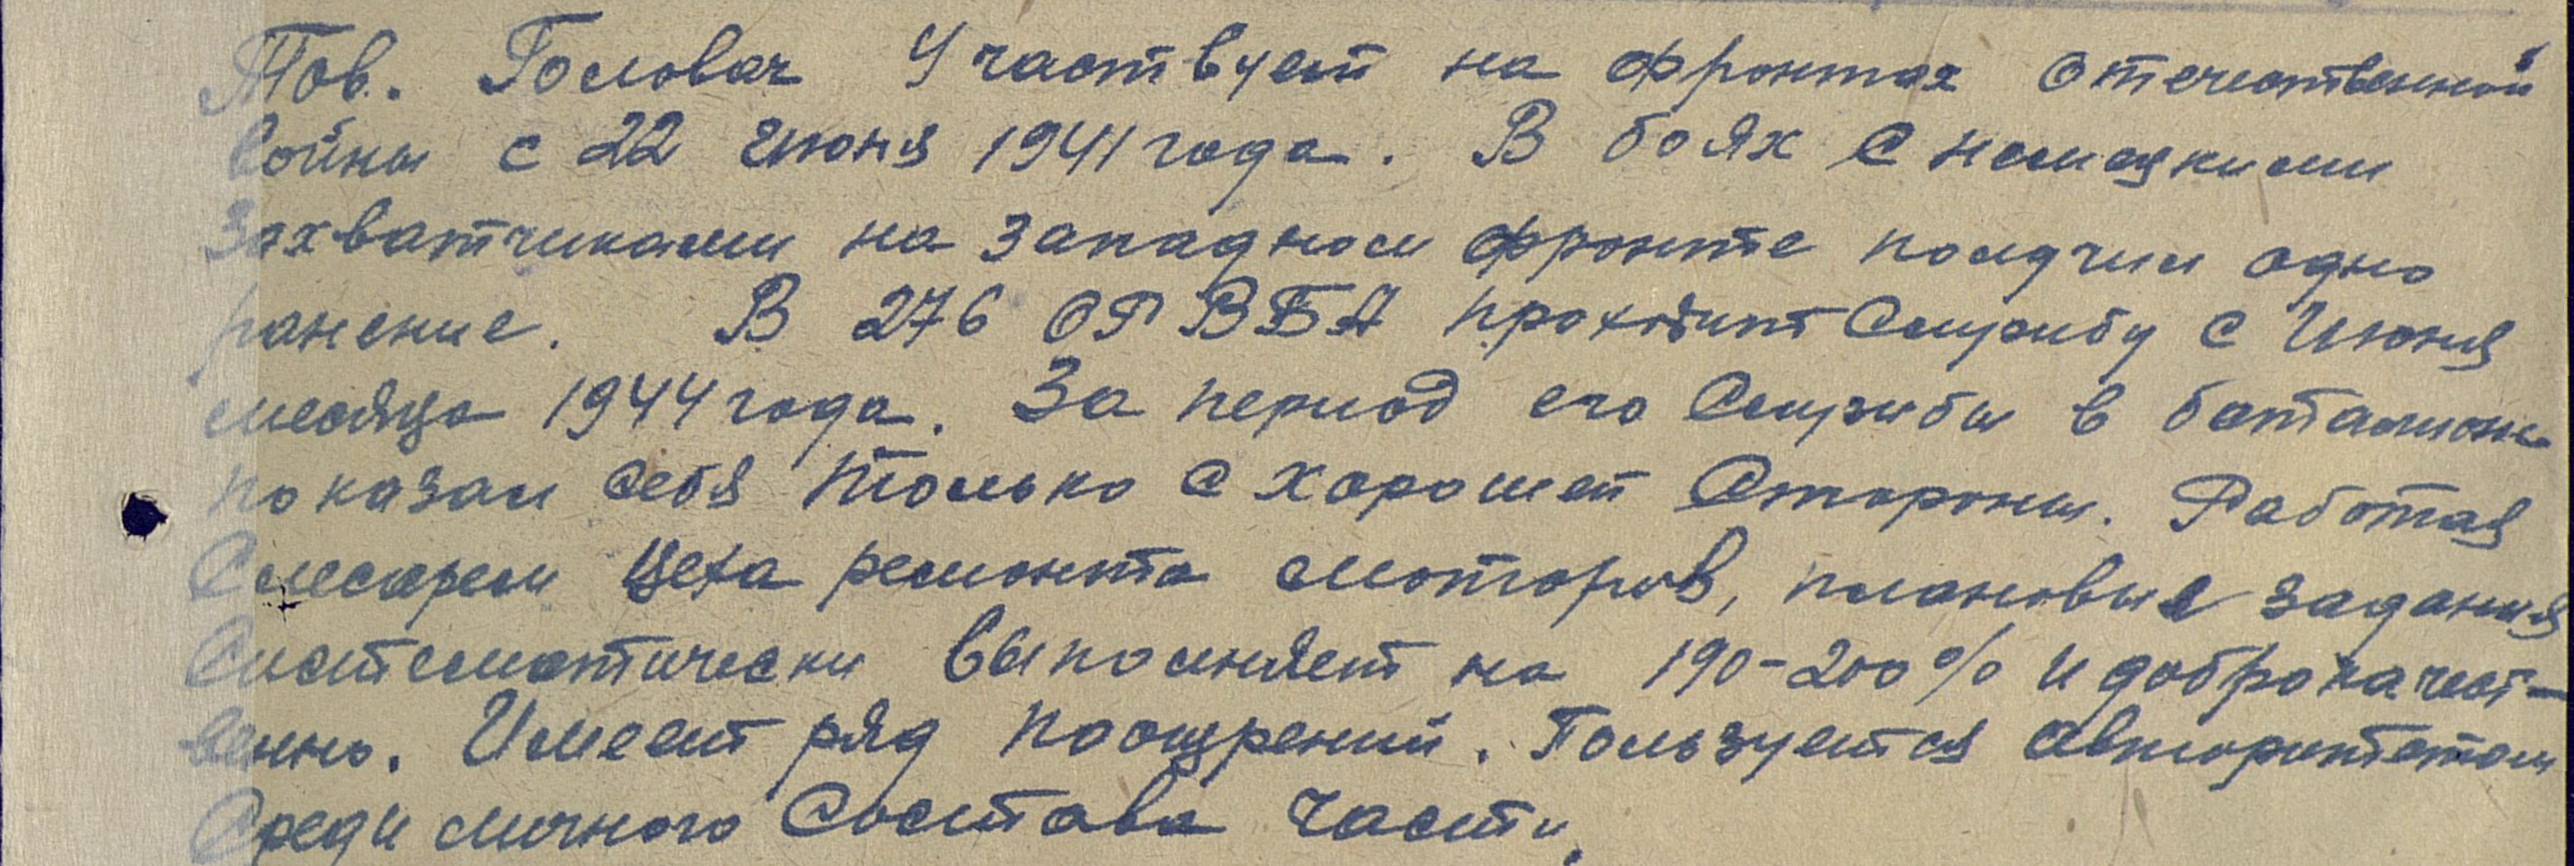 Тов. Головач Участвует на фронтах Отечественной
войны с 22 июня 1941 года. В боях с немецкими
захватчиками на Западном фронте получил одно
ранение. В 276 ОРВБА проходит Службу с Июня
месяца 1944 года. За период его Службы в батальоне
показал себя только с хорошей Стороны. Работая
Слесарем цеха ремонта моторов, плановые задания
Систематически выполняет на 190-200% и доброкачест-
венно. Имеет ряд поощрений. Пользуется авторитетом
Среди личного Состава части.